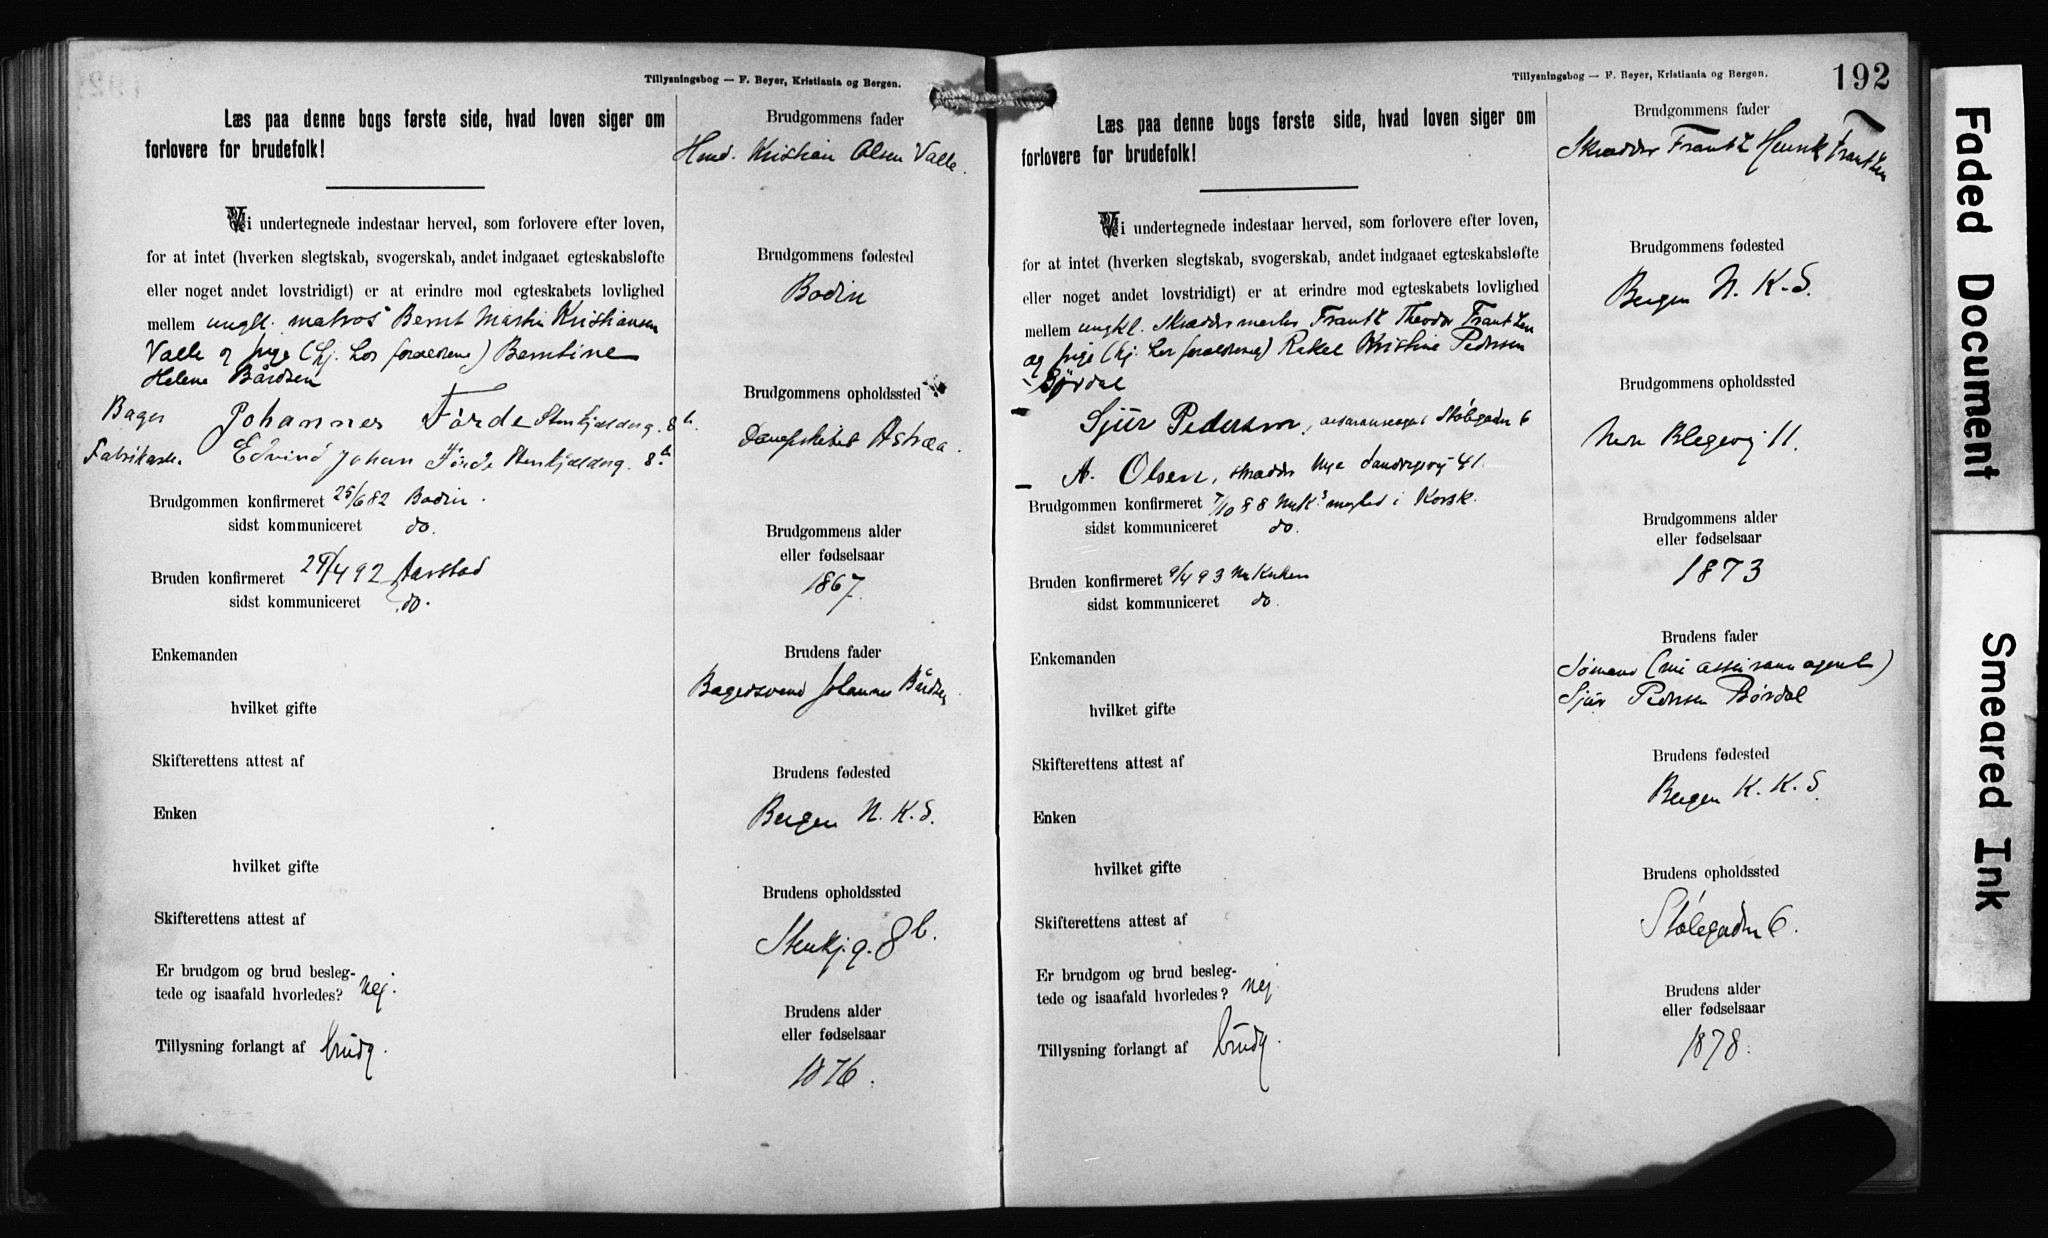 Tillysningsbog — F. Beyer, Kristiania og Bergen.
Læs paa denne bogs første side, hvad loven siger om
forlovere for brudefolk!
Vi undertegnede indestaar herved, som forlovere efter loven,
for at intet (hverken slegtskab, svogerskab, andet indgaaet egteskabsløfte
eller noget andet lovstridigt) er at erindre mod egteskabets lovlighed
mellem ungk. matros Bernt Martin Kristiansen
Valle og pige (hj. hos forældrene) Berntine
Helene Bårdsen
Bager Johannes Førde Stenkjelderg. 8 b.
Edvind Johan Førde Stenkjelderg. 8 b
Brudgommen konfirmeret 25/6 82 Bodin.
sidst kommuniceret do.
Bruden konfirmeret 24/4 92 Aarstad
sidst kommuniceret do.
Enkemanden
hvilket gifte
Skifterettens attest af
Enken
hvilket gifte
Skifterettens attest af
Er brudgom og brud besleg-
tede og isaafald hvorledes? Nej.
Tillysning forlangt af brudg.
Brudgommens fader
Hmd. Kristian Olsen Valle.
Brudgommens fødested
Bodin
Brudgommens opholdssted
Dampskibet Astræa.
Brudgommens alder
eller fødselsaar
1867.
Brudens fader
Bagersvend Johannes Bårdsen
Brudens fødested
Bergen N. K. S.
Brudens opholdssted
Stenkj.g. 8 b.
Brudens alder
eller fødselsaar
1876.
Tillysningsbog — F. Beyer, Kristiania og Bergen.
192
Læs paa denne bogs første side, hvad loven siger om
forlovere for brudefolk!
Vi undertegnede indestaar herved, som forlovere efter loven,
for at intet (hverken slegtskab, svogerskab, andet indgaaet egteskabsløfte
eller noget andet lovstridigt) er at erindre mod egteskabets lovlighed
mellem ungkl. Skræddermester Frantz Theodor Frantzen
og pige (hj. hos forældrene) Rakel Kristine Pedersen
Børdal
Sjur Pedersen, Stølegaden 6
A. Olsen, skrædder Nye Sandviksvej 41.
Brudgommen konfirmeret 7/10 88 i Korsk.
sidst kommuniceret do.
Bruden konfirmeret 9/4 93 Nykirken
sidst kommuniceret do.
Enkemanden
hvilket gifte
Skifterettens attest af
Enken
hvilket gifte
Skifterettens attest af
Er brudgom og brud besleg-
tede og isaafald hvorledes? Nej.
Tillysning forlangt af brudg.
Brudgommens fader
Skrædder Frantz Henrik Frantzen
Brudgommens fødested
Bergen N. K. S.
Brudgommens opholdssted
Nedre Blegevej 11.
Brudgommens alder
eller fødselsaar
1873
Brudens fader
Sømand (nu assuranceagent)
Sjur Pedersen Børdal
Brudens fødested
Bergen K. K. S.
Brudens opholdssted
Stølegaden 6.
Brudens alder
eller fødselsaar
1878.
Faded Document
Smeared Ink